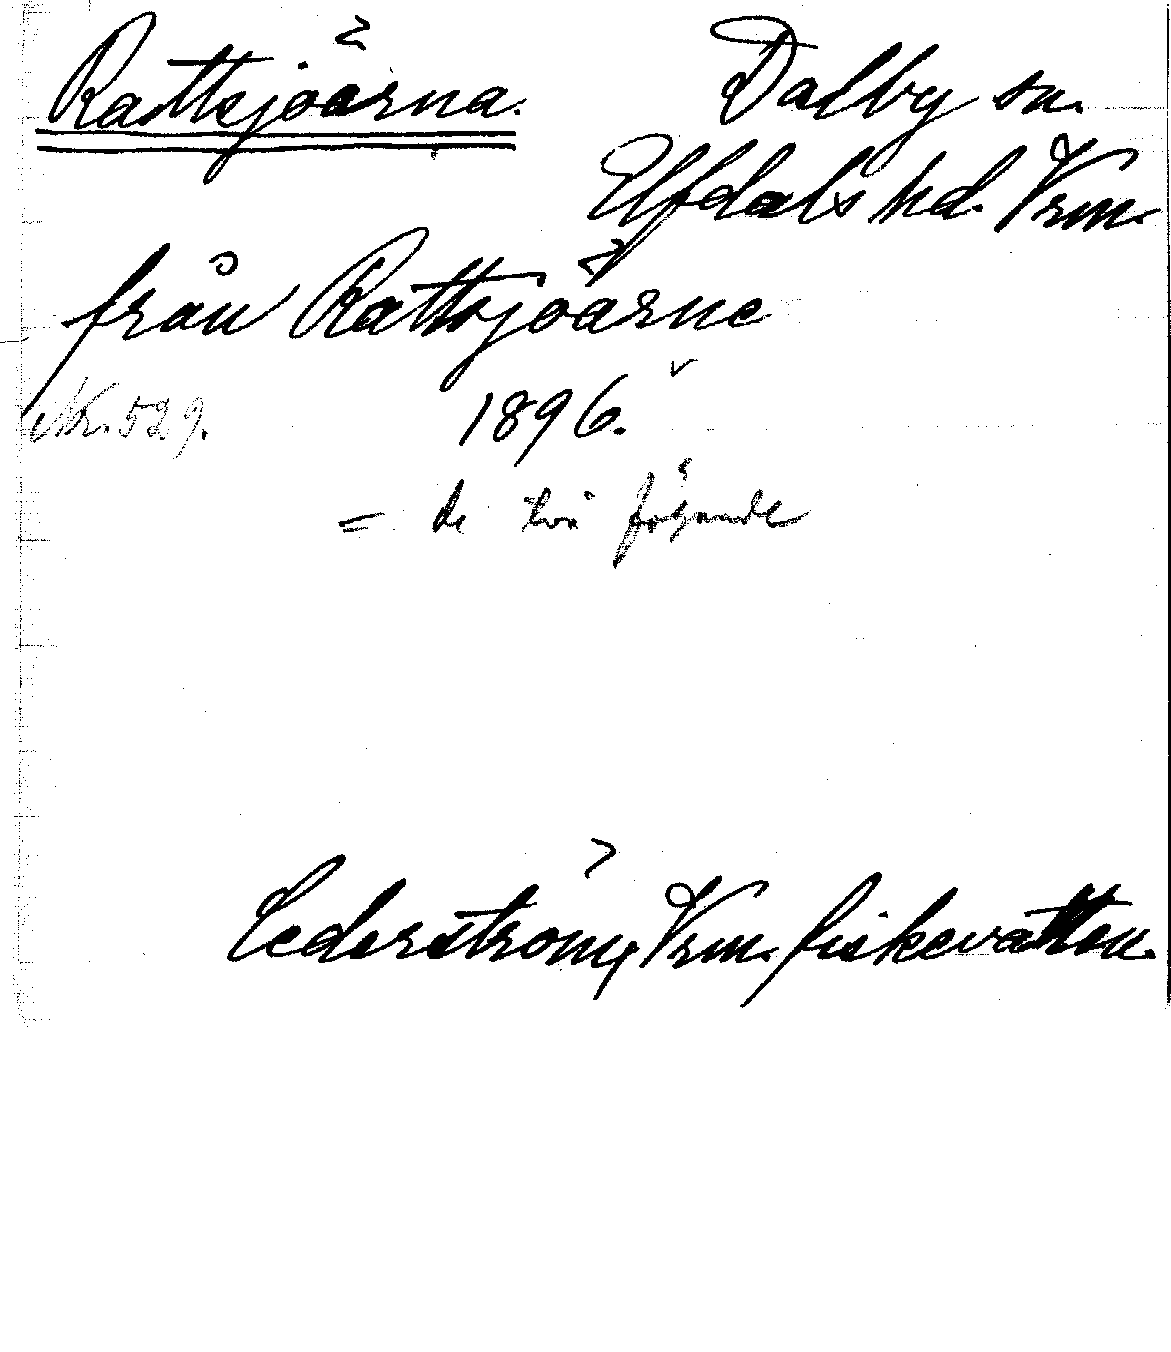 Rattsjöärna. Dalby sn.
Elfdals hd. Vrm.
från Rattsjöärne
Nr. 529. 1896.
= de två följande
Cederström, Vrm. fiskevatten.